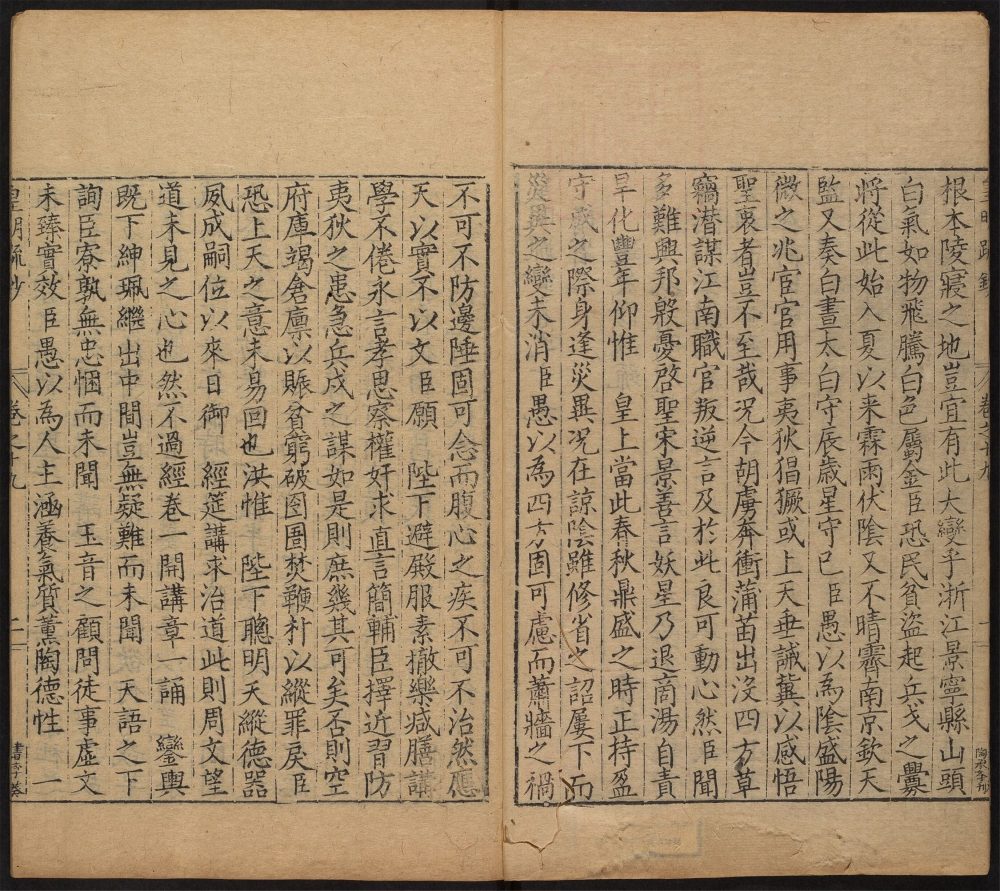 皇明疏鈔 卷之十九 一
根本陵寢之地豈宜有此大變乎浙江景寧縣山頭
白氣如物飛騰白色屬金臣恐民貧盜起兵戈之釁
將從此始入夏以来霖雨伏陰又不晴霽南京欽天
監又奏白晝太白守辰歲星守巳臣愚以為陰盛陽
微之兆宦官用事夷狄猖獗或上天垂誡冀以感悟
聖衷者豈不至哉况今胡虜奔衝蒲苗出沒四方草
竊潜謀江南職官叛逆言及於此良可動心然臣聞
多難興邦殷憂啓聖宋景善言妖星乃退商湯自責
旱化豐年仰惟 皇上當此春秋鼎盛之時正持盈
守成之際身逢災異况在諒陰雖修省之詔屢下而
災異之變未消臣愚以為四方固可慮而蕭牆之禍
不可不防邊陲固可念而腹心之疾不可不治然應
天以實不以文臣願 陛下避殿服素撤樂减膳講
學不倦永言孝思察權奸求直言簡輔臣擇近習防
夷狄之患急兵戎之謀如是則庶幾其可矣否則空
府庫竭倉廪以賑貧窮破囹圄焚鞭朴以縱罪戾臣
恐上天之意未易回也洪惟 陛下聰明天縱德器
夙成嗣位以來日御 經筵講求治道此則周文望
道未見之心也然不過經卷一開講章一誦 鑾輿
既下紳珮繼出中間豈無疑難而未聞 天語之下
詢臣寮孰無忠悃而未聞 玉音之顧問徒事虛文
未臻實效臣愚以為人主涵養氣質薫陶德性 一
皇明疏鈔 卷之十九 二